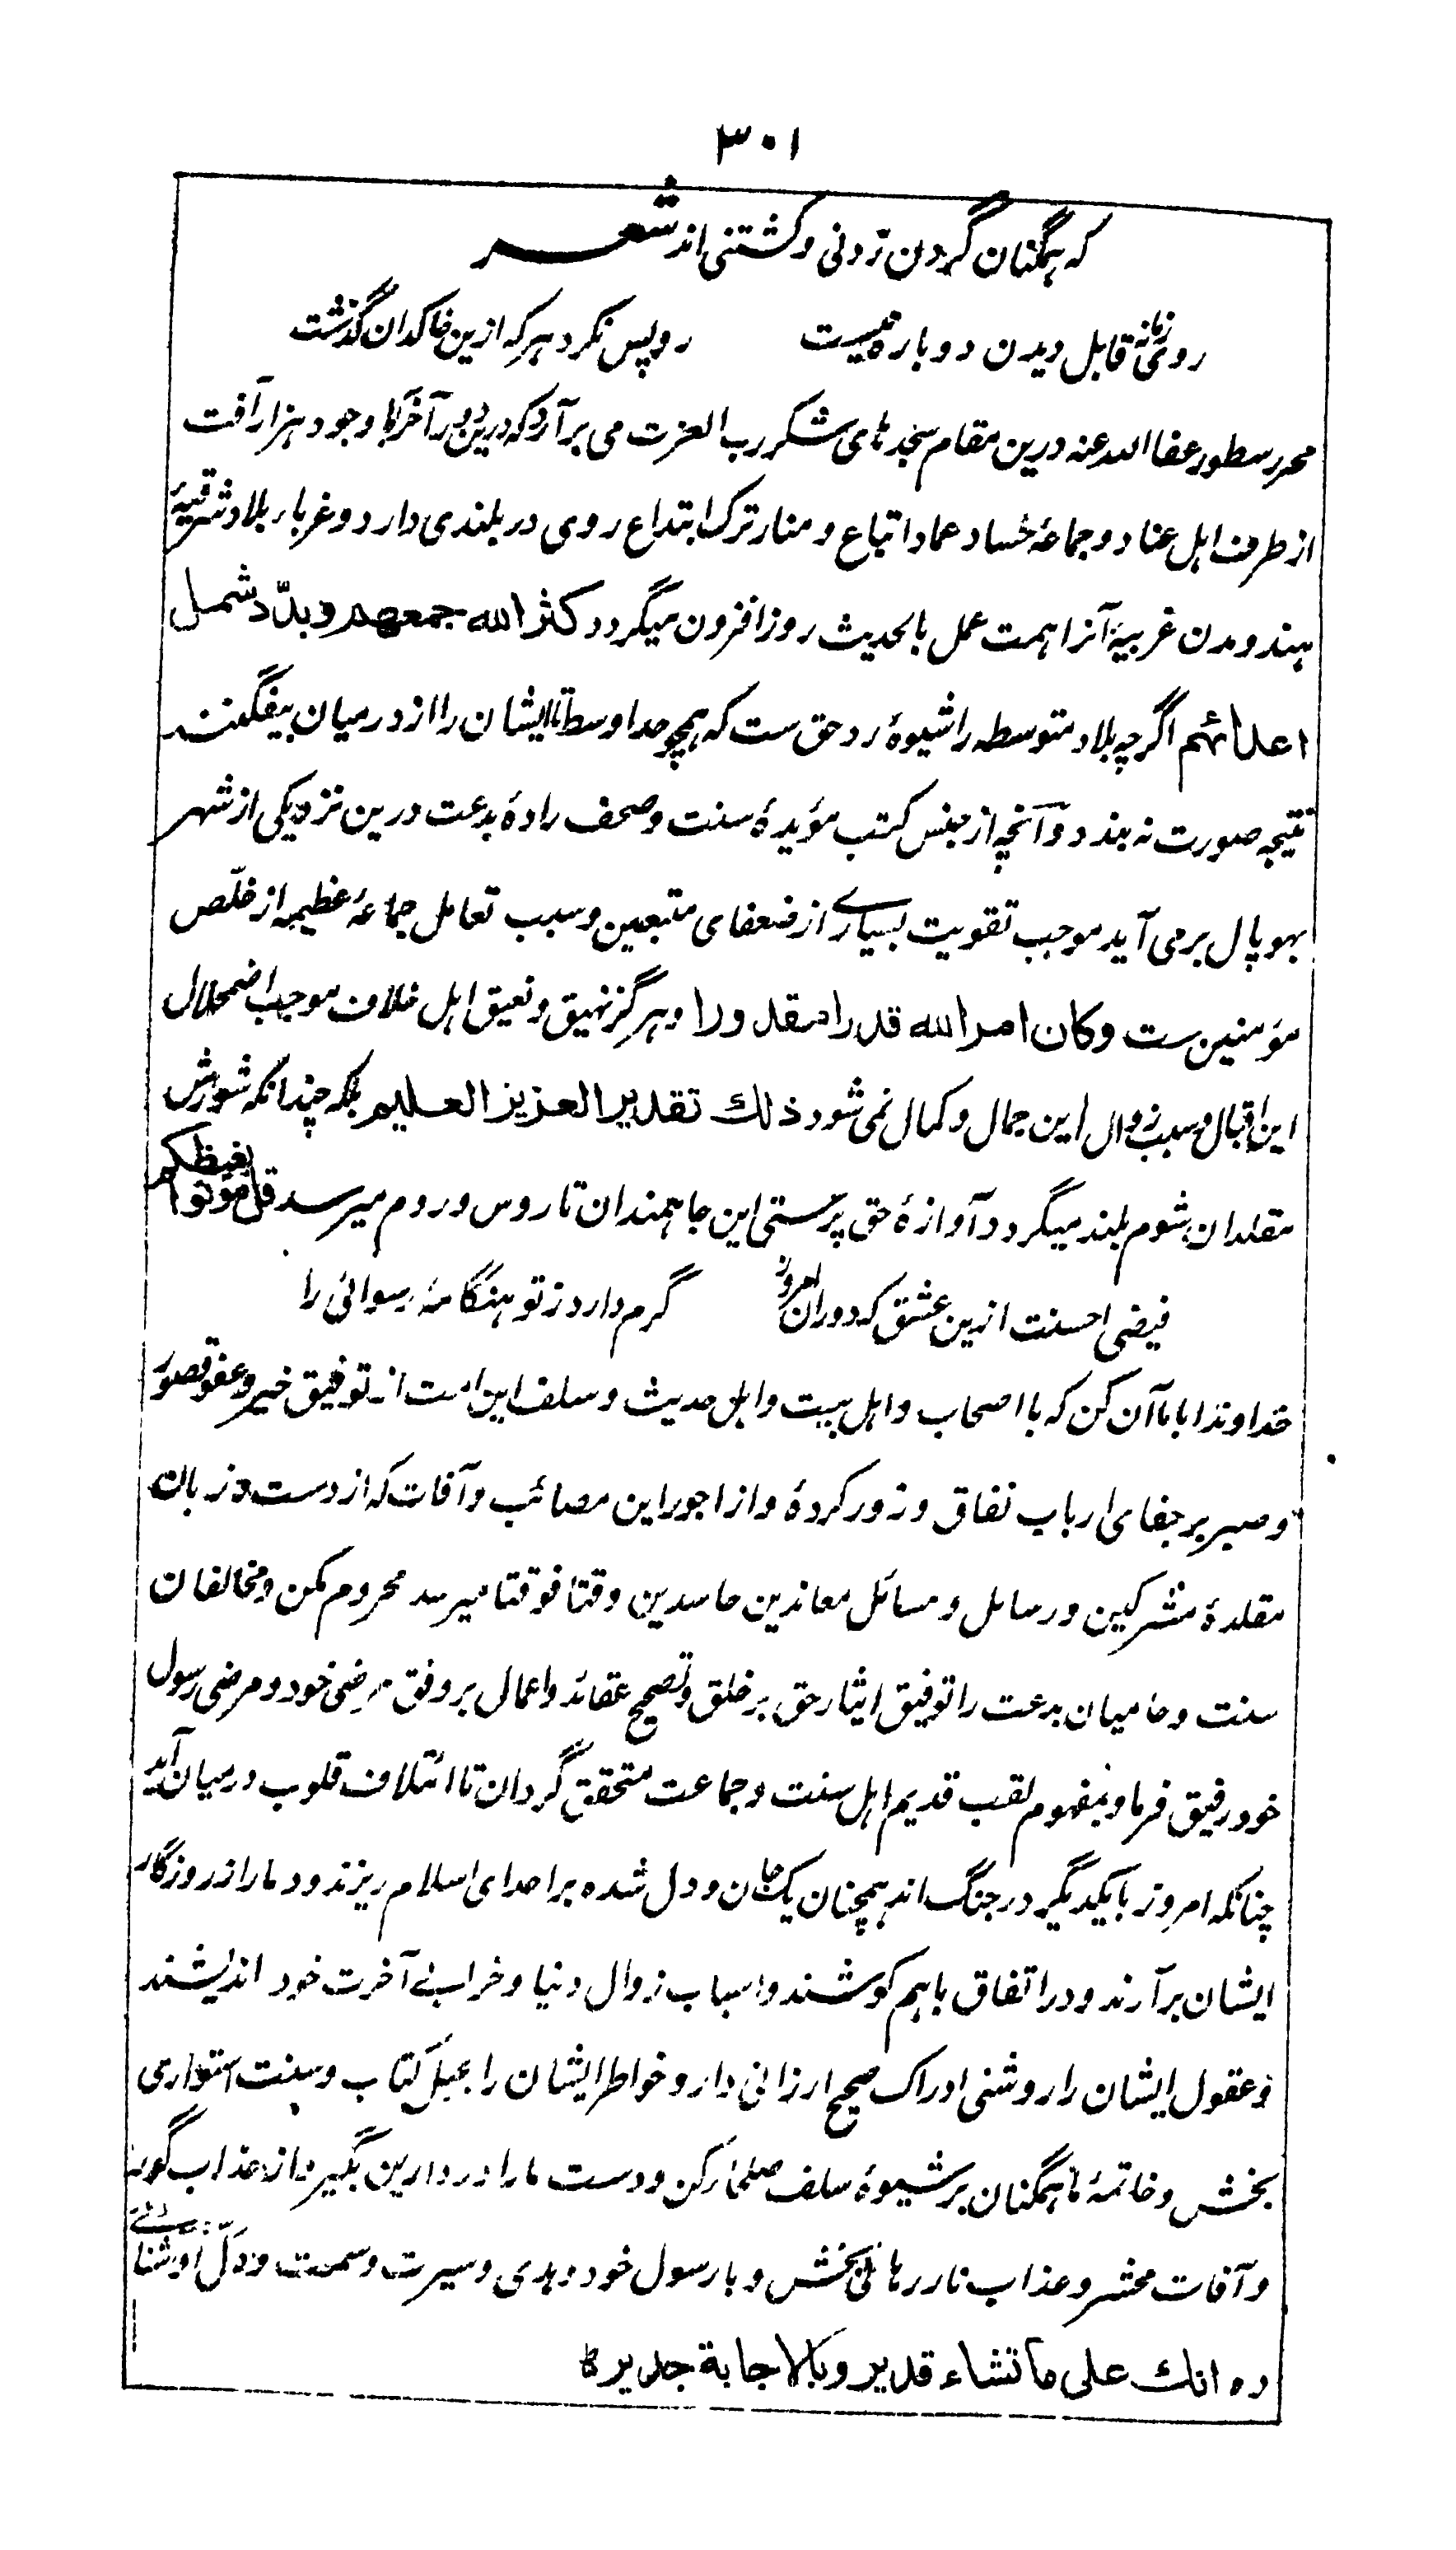 ۳۰۱
که همگنان گردن زدنی و کشتنی اند شعر
روی زمانه قابل دیدن دوباره نیست روپس نکرد هرکه ازین خاکدان گذشت
محرر سطور عفا الله عنه درین مقام سجدهای شکر رب العزت می برآرد که درین دور آخر با وجود هزار آفت
از طرف اهل عناد و جماعهٔ حساد عماد اتباع و منار ترک ابتداع روی در بلندی دارد و غرباء بلاد شرقیهٔ
هند و مدن غربیهٔ آنرا همت عمل بالحدیث روز افزون میگردد کثر الله جمعهم وبدّد شمل
اعدائهم اگرچه بلاد متوسطه را شیوهٔ رد حق ست که همچو حد اوسط تا ایشان را از درمیان بیفگنند
نتیجه صورت نه بندد و آنچه از جنس کتب مؤیدهٔ سنت و صحف رادهٔ بدعت درین نزدیکی از شهر
بهوپال برمی آید موجب تقویت بسیاری از ضعفای متبعین و سبب تعامل جماعهٔ عظیمه از خلّص
مؤمنین ست وکان امر الله قدرا مقدورا و هرگز نهیق و نعیق اهل خلاف موجب اضمحلال
این اقبال و سبب زوال این جمال و کمال نمی شود ذلك تقدیر العزیز العلیم بلکه چندانکه شورش
مقلدان شوم بلند میگردد آوازهٔ حق پرستی این جا همندان تا روس و روم میرسد قل موتوا بغیظکم
فیضی احسنت ازین عشق که دوران امروز گرم دارد ز تو هنگامهٔ رسوائی را
خداوندا با ما آن کن که با اصحاب و اهل بیت و اهل حدیث و سلف این امت از توفیق خیر و عفو قصور
و صبر بر جفای ارباب نفاق و زور کردهٔ و از اجور این مصائب و آفات که از دست و زبان
مقلدهٔ مشرکین و رسایل و مسائل معاندین حاسدین وقتا فوقتا میرسد محروم مکن و مخالفان
سنت و حامیان بدعت را توفیق ایثار حق بر خلق و تصحیح عقائد و اعمال بر وفق مرضی خود و مرضی رسول
خود رفیق فرما و بمفهوم لقب قدیم اهل سنت و جماعت متحقق گردان تا ائتلاف قلوب درمیان آید
چنانکه امروز با یکدیگر در جنگ اند همچنان یک جان و دل شده بر اعدای اسلام ریزند و دمار از روزگار
ایشان برآرند و در اتفاق باهم کوشند و اسباب زوال دنیا و خرابی آخرت خود اندیشند
و عقول ایشان را روشنی ادراک صحیح ارزانی دار و خواطر ایشان را بحبل کتاب و سنت استواری
بخش و خاتمهٔ ما همگنان بر شیوهٔ سلف صلحا کن و دست ما را در دارین بگیر و از عذاب گور
و آفات محشر و عذاب نار رهائی بخش و با رسول خود و هدی و سیرت و سمت و دلّ او شناسائی
ده انك علی ما تشاء قدیر وبالاجابة جدیر